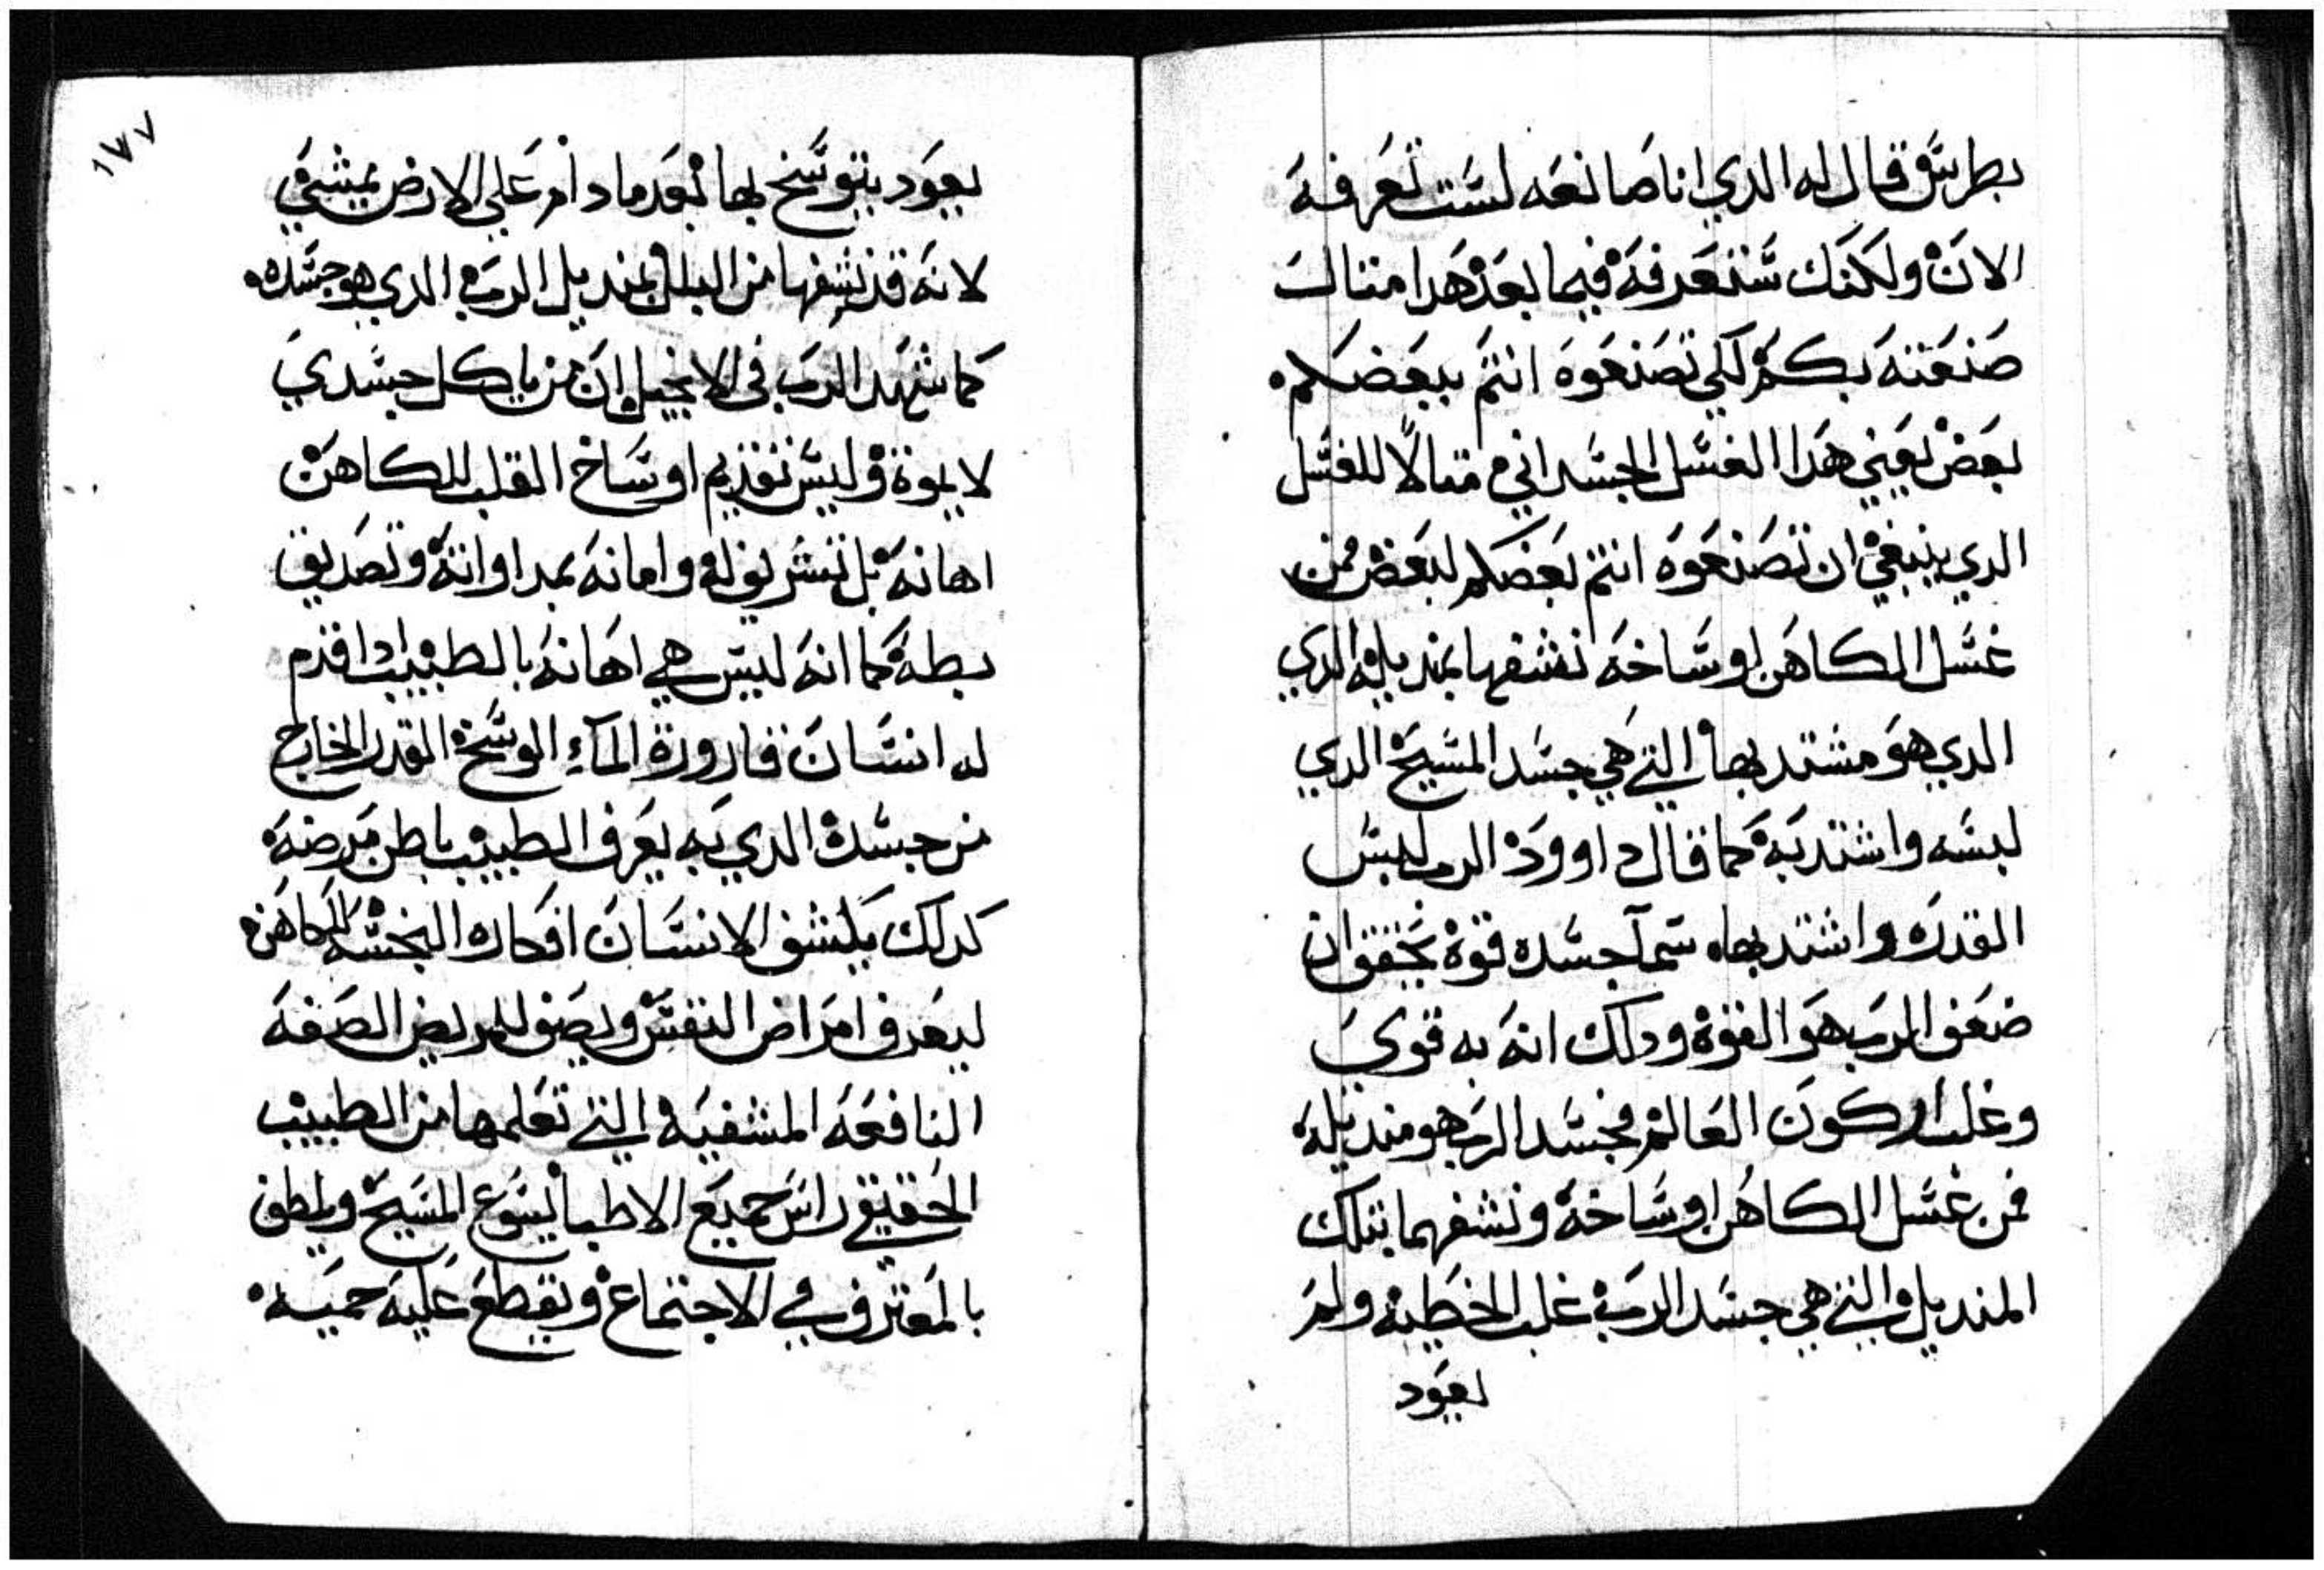 بطرس قال له الدي انا صانعه لست تعرفه
الان ولكنك ستعرفه فيما بعد هدا مثالت
صنعته بكم لكي تصنعوه انتم ببعضكم
بعض يعني هدا الغسل الجسداني مثالًا للغسل
الدي ينبغي ان تصنعوه انتم بعضكم لبعض فمن
غسل الكاهن اوساخه نشفها بمنديله الدي
الدي هو مشتد بها التي هي جسد المسيح الدي
لبسه واشتد به كما قال داوود الرب لبس
القدره واشتد بها سمآ جسده قوة بحق وان
ضعف الرب هو القوة ودلك انه به قوي
وغلب اركون العالم فجسد الرب هو منديله
فمن غسل الكاهن اوساخه ونشفهما بتلك
المنديل والتي هي جسد الرب غلب الخطيه ولم
يعود
١٧٧
يعود يتوسخ بها بعد ما دام علي الارض يمشي
لانه قد نشفها من البلل بمنديل الرب الدي هو جسده
كما شهد الرب في الانجيل ان من ياكل جسدي
لا يموة وليس تقديم اوساخ القلب للكاهن
اهانه بل تشريف له وامانه بمداواته وتصديق
بطبه كما انه ليس هي اهانه بالطبيب ادا قدم
له انسان قارورة المآء الوسخ القدر الخارج
من جسده الدي به يعرف الطبيب باطن مرضه
كدلك يكشف الانسان افكاره النجسه للكاهن
ليعرف امراض النفس ويصف للمريض الصفه
النافعه المشفيه التي تعلمها من الطبيب
الحقيقي راس جميع الاطبا يسوع المسيح ويلطف
بالمعترف في الاجتماع ويقطع عليه حميه